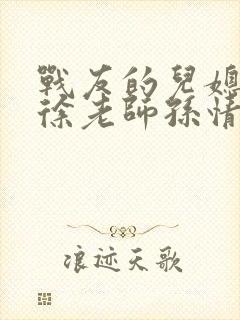 戰友的兒媳
徐老師孫情
浪迹天歌